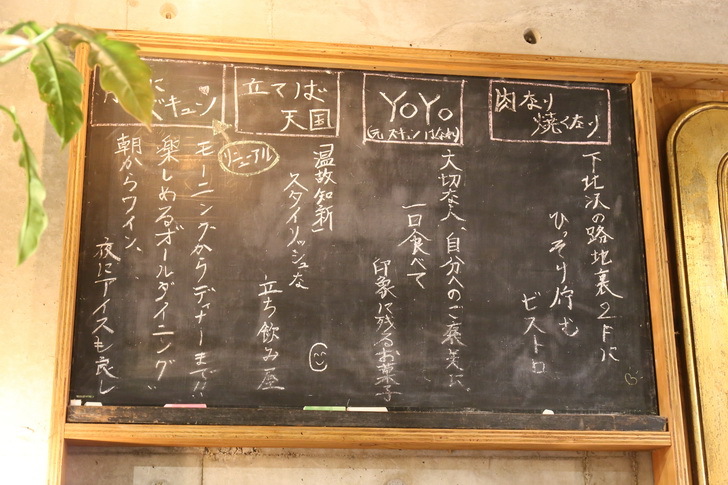 肉なり
焼くなり
下北沢の路地裏2Fに
ひっそり佇む
ビストロ
YoYo
大切な人、自分へのご褒美に。
一口食べて
印象に残るお菓子
立てば
天国
「温故知新」
スタイリッシュな
立ち飲み屋
に
ズキュン
リニューアル
モーニングからディナーまで!!
楽しめるオールダイニング
朝からワイン、
夜にアイスも良し